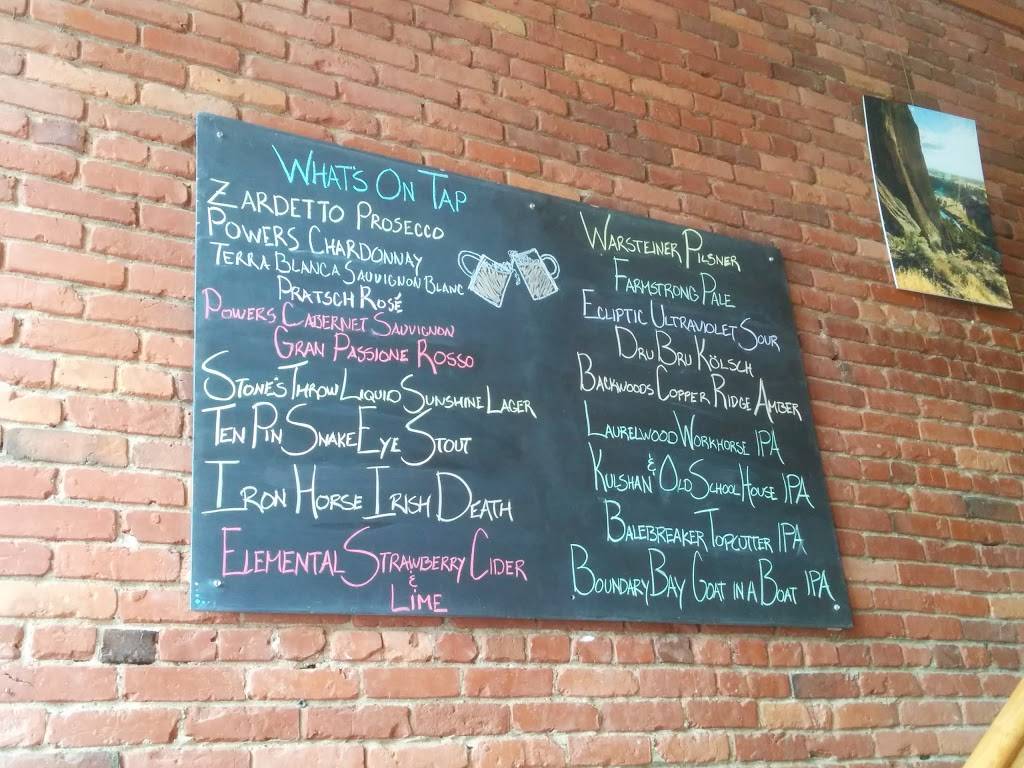 WHAT'S ON TAP
ZARDETTO PROSECCO
POWERS CHARDONNAY
TERRA BLANCA SAUVIGNON BLANC
PRATSCH ROSÉ
POWERS CABERNET SAUVIGNON
GRAN PASSIONE ROSSO
STONE'S THROW LIQUID SUNSHINE LAGER
TEN PIN SNAKE EYE STOUT
IRON HORSE IRISH DEATH
ELEMENTAL STRAWBERRY CIDER
&
LIME
WARSTEINER PILSNER
FARMSTRONG PALE
ECLIPTIC ULTRAVIOLET SOUR
DRU BRU KÖLSCH
BACKWOODS COPPER RIDGE AMBER
LAURELWOOD WORKHORSE IPA
&
KULSHAN OLD SCHOOL HOUSE IPA
BALEBREAKER TOPCUTTER IPA
BOUNDARY BAY GOAT IN A BOAT IPA